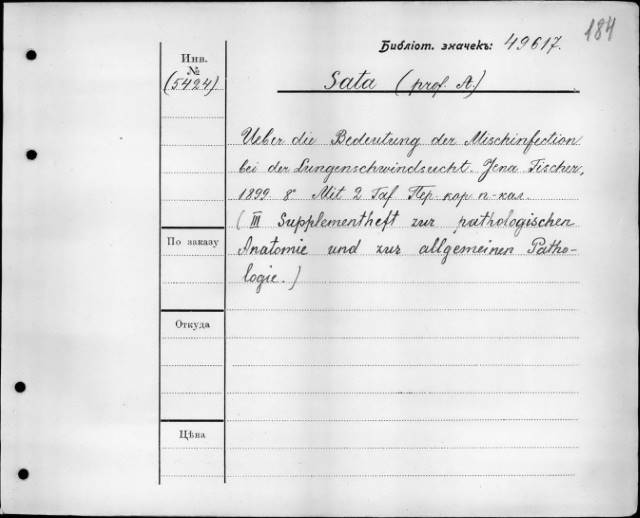 184
Библіот. значекъ: 49617.
Инв.
№
(5424)
Sata (prof. A.)
Ueber die Bedeutung der Mischinfection
bei der Lungenschwindsucht. Jena Fischer,
1899. 8° Mit 2 Taf Пер. кор п-кал.
(III Supplementheft zur pathologischen
Anatomie und zur allgemeinen Patho-
logie.)
По заказу
Откуда
Цѣна